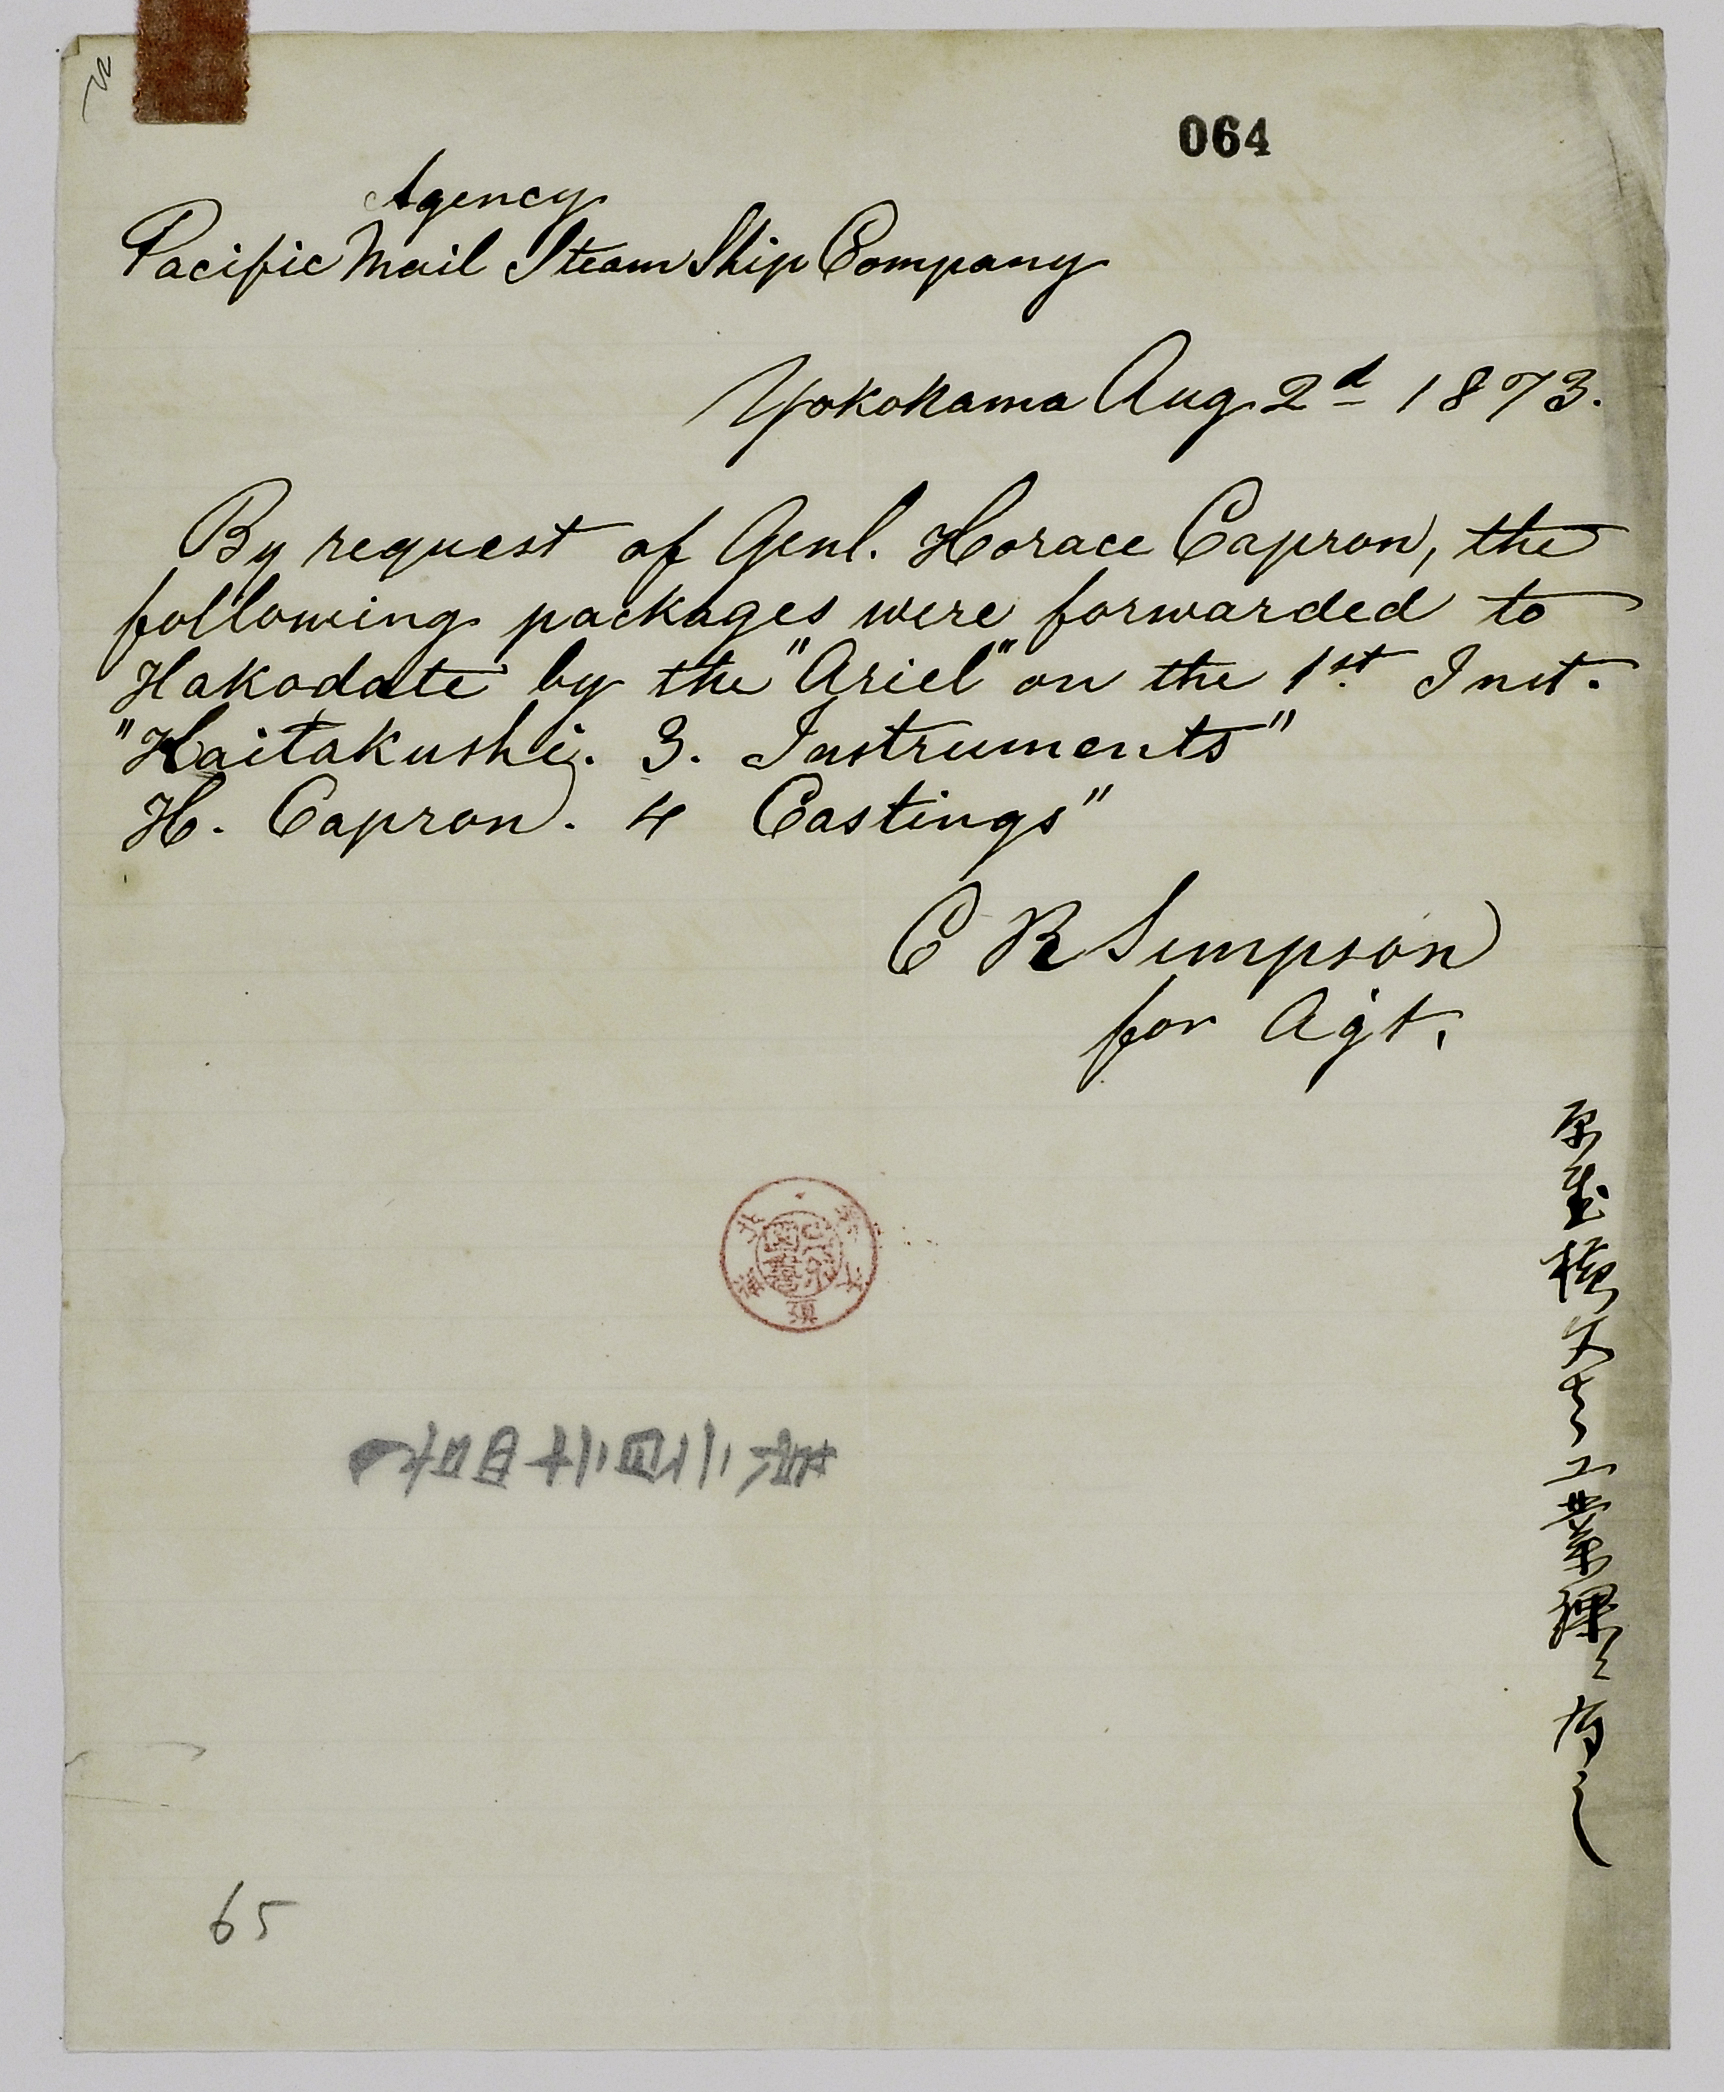 064
Agency
Pacific Mail Steam Ship Company
Yokohama Aug 2d 1873.
By request of Genl. Horace Capron, the
following packages were forwarded to
Hakodate by the "Ariel" on the 1st Inst.
"Kaitakushi. 3. Instruments"
H. Capron. 4 Castings"
C R Simpson
for Agt.
工業課
65